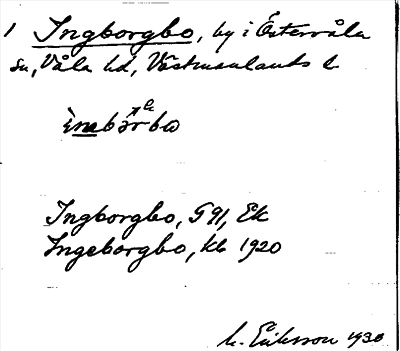 1 Ingborgbo, by i Östervåla
sn, Våla hd, Västmanlands l
Ingborgbo, G 91, Ek
Ingeborgbo, kb 1920
M. Eriksson 1930